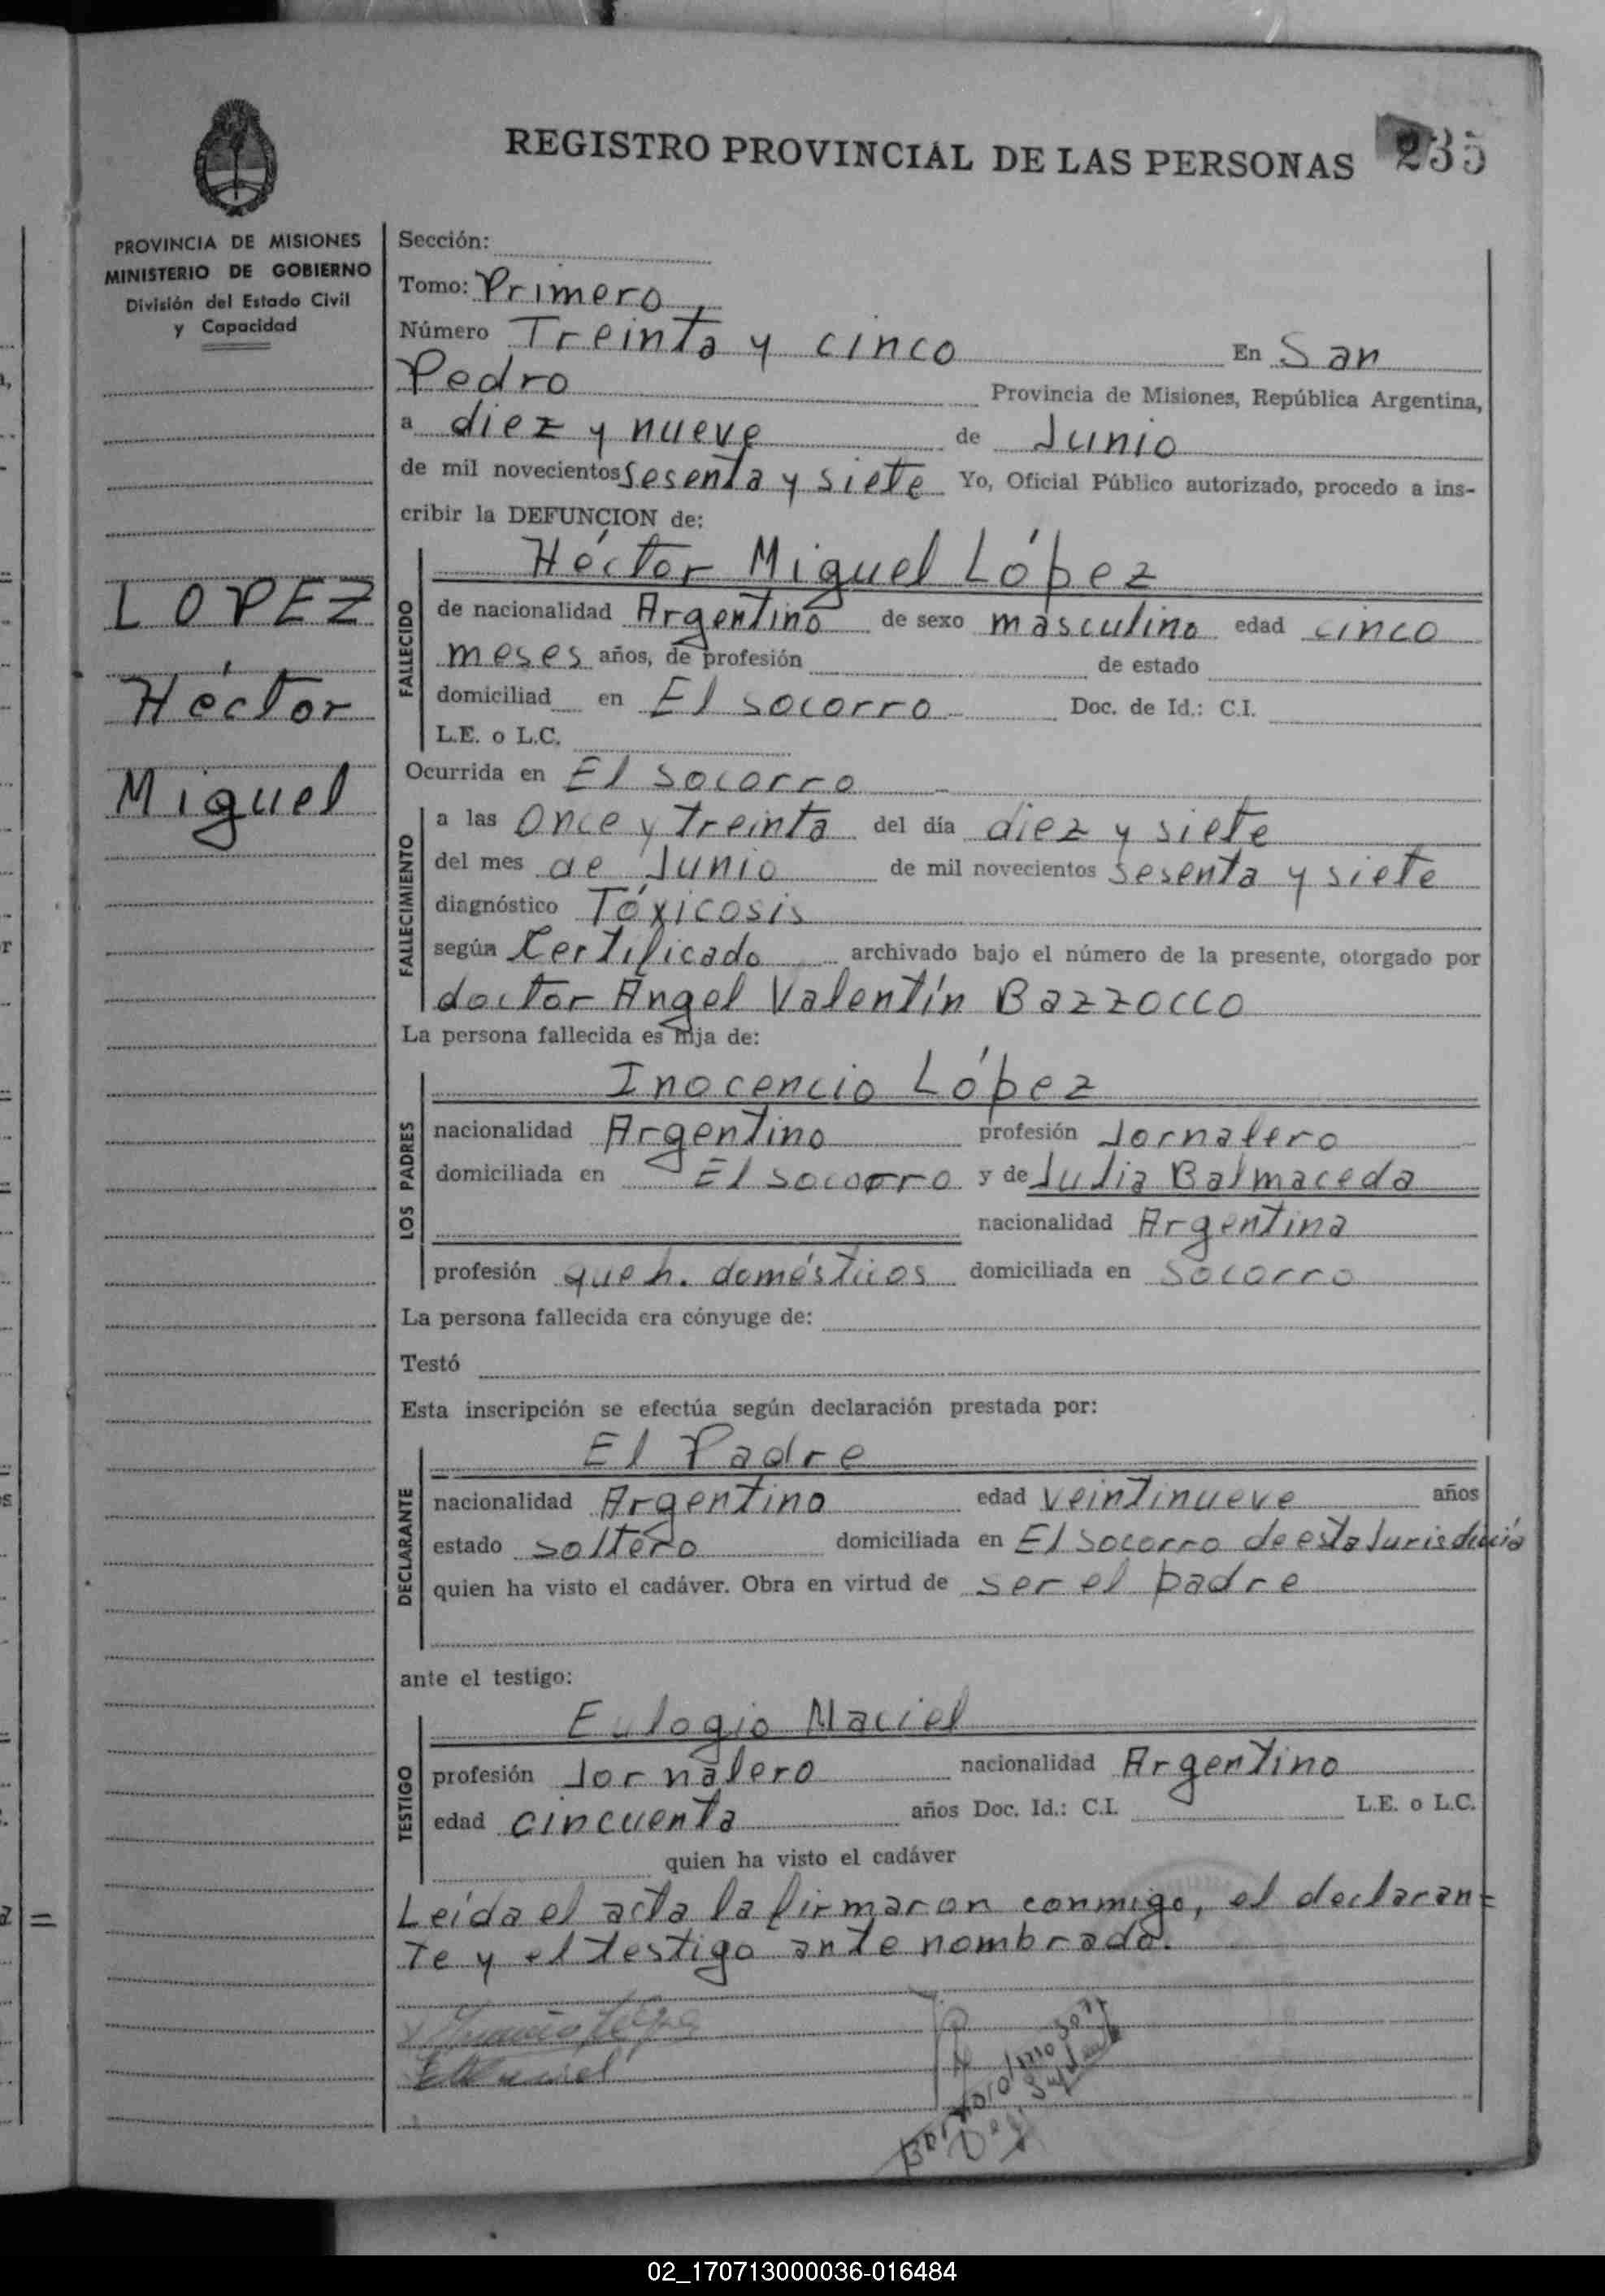 REGISTRO PROVINCIAL DE LAS PERSONAS 235
PROVINCIA DE MISIONES
MINISTERIO DE GOBIERNO
División del Estado Civil
y Capacidad
LOPEZ
Héctor
Miguel
Sección:
Tomo: Primero
Número Treinta y cinco En San
Pedro Provincia de Misiones, República Argentina,
a diez y nueve de Junio
de mil novecientos sesenta y siete Yo, Oficial Público autorizado, procedo a ins-
cribir la DEFUNCION de:
FALLECIDO
Héctor Miguel López
de nacionalidad Argentino de sexo masculino edad cinco
meses años, de profesión de estado
domiciliad en El socorro Doc. de Id.: C.I.
L.E. o L.C.
Ocurrida en El socorro
FALLECIMIENTO
a las Once y treinta del día diez y siete
del mes de Junio de mil novecientos sesenta y siete
diagnóstico Tóxicosis
según Certificado archivado bajo el número de la presente, otorgado por
doctor Angel Valentín Bazzocco
La persona fallecida es hija de:
LOS PADRES
Inocencio López
nacionalidad Argentino profesión Jornalero
domiciliada en El socorro y de Julia Balmaceda
nacionalidad Argentina
profesión queh. domésticos domiciliada en Socorro
La persona fallecida era cónyuge de:
Testó
Esta inscripción se efectúa según declaración prestada por:
DECLARANTE
El Padre
nacionalidad Argentino edad veintinueve años
estado soltero domiciliada en El socorro de esta Jurisdicció
quien ha visto el cadáver. Obra en virtud de ser el padre
ante el testigo:
TESTIGO
Eulogio Maciel
profesión Jornalero nacionalidad Argentino
edad cincuenta años Doc. Id.: C.I. L.E. o L.C.
quien ha visto el cadáver
Leída el acta la firmaron conmigo, el declaran=
te y el testigo ante nombrado.
02_170713000036-016484